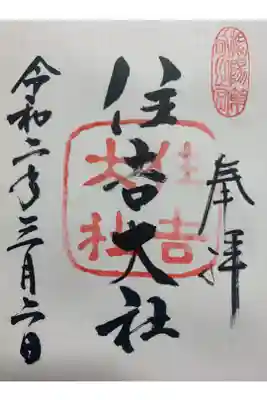 奉拝
住吉大社
住吉
大社
令和二年三月六日